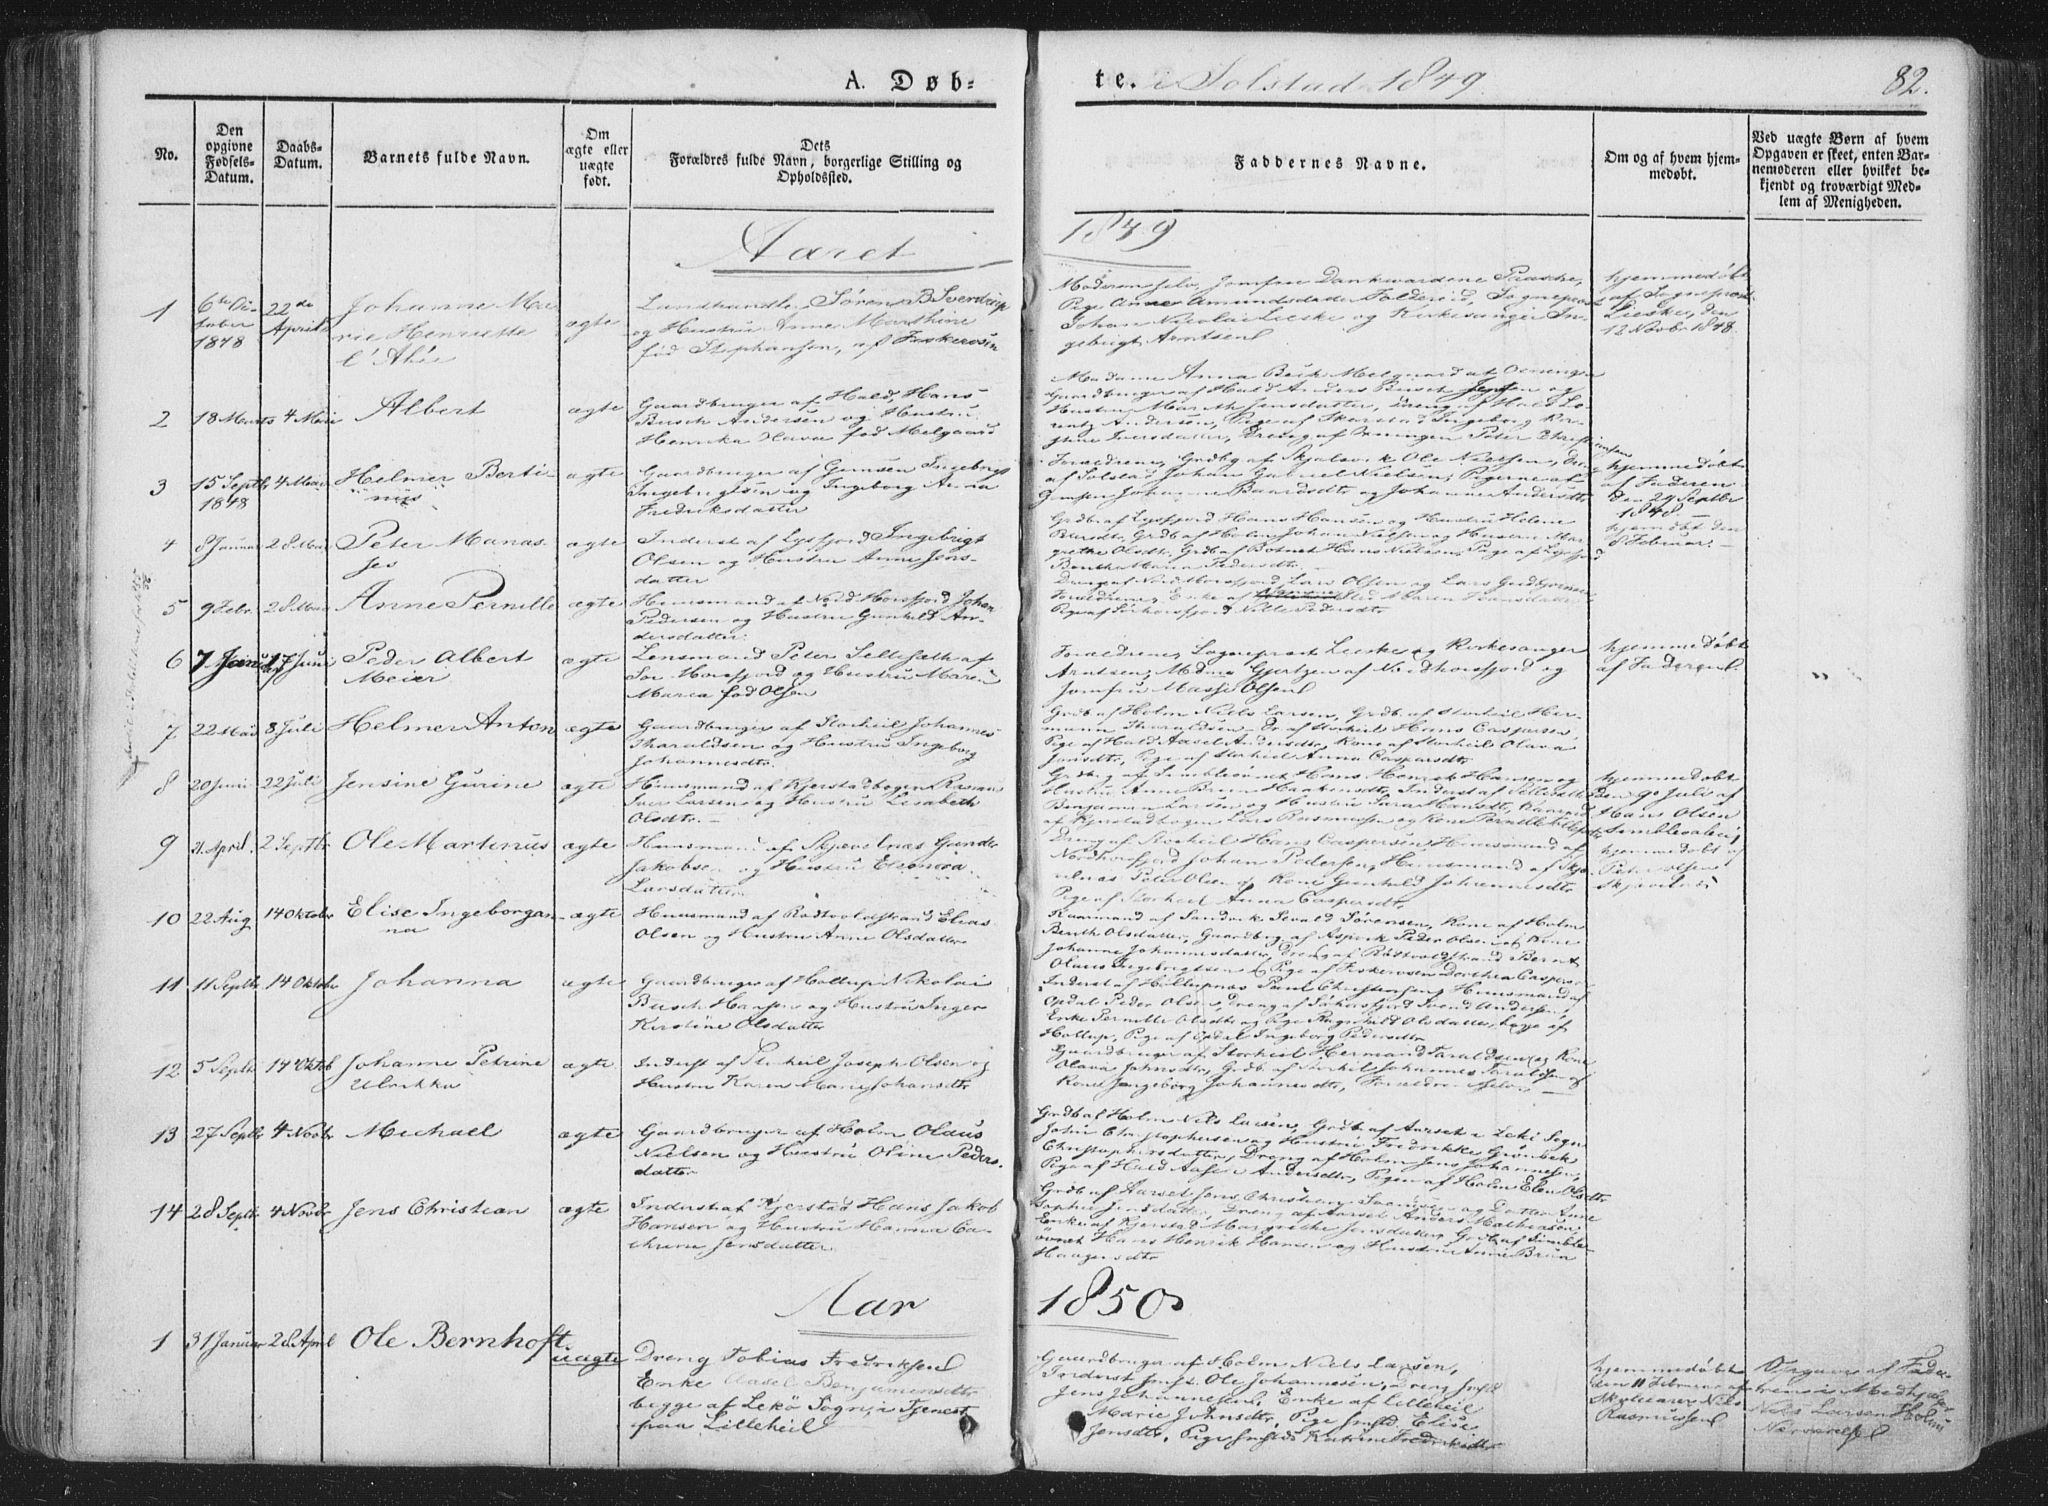 A. Døb-
te. i Solstad 1849
82.
No.
Den opgivne Fødsels-Datum.
Daabs-Datum.
Barnets fulde Navn.
Om ægte eller uægte født.
Dets Forældres fulde Navn, borgerlige Stilling og Opholdssted.
Faddernes Navne.
Om og af hvem hjem-medøbt.
Ved uægte Børn af hvem Opgaven er skeet, enten Bar-nemoderen eller hvilket be-kjendt og troværdigt Med-lem af Menigheden.
Aaret 1849
1
6te Oc-
tober
1848
22de
April
Johanne Ma-
rie Henriette
ægte
Landhandler Søren B Sverdrup
og Hustru Anne Marthine
fød Stephansen, af Fiskerosen
Moderen selv, Jomfru Dankwardene Paasche,
Pige Anne Amundsdatter
Johan Nicolai Lieske og Kirkesanger In-
gebrigt Arntsen
hjemmedøbt
af Sognepræst
Lieske, den
12 Novbr 1848.
2
18 Marts
4 Mai
Albert
ægte
Gaardbruger af Hald, Hans
Busch Andersen og Hustru
Henrika Hava fød Melgaard
Madame Anna Beck Melgaard af
Gaardbruger af Hald Anders Busch Jensen og
Hustru Mareth Jensdatter, Dreng af Hald Lo-
rentz Andersen, Pige af Ingeborg Kir-
stine Iversdatter, Dreng af Peter Christi
ansen
3
15 Septbr
1848
4 Mai
Helmer Berti-
nus
ægte
Gaardbruger af Gimsen Ingebrigt
Ingebrigtsen og Ingeborg Anna
Fredriksdatter
Forældrene, Grdbg af Skjelsvik Ole Nielsen, Dreng
af Solstad Johan Gabriel Nielsen, Pigerne af
Johanne Baardsdtr og Johanna Andersdtr
hjemmedøbt
af Faderen
den 29 Septbr
1848
4
8 Januar
28 Mai
Peter Manas-
ses
ægte
Inderst af Lysfjord Ingebrigt
Olsen og Hustru Anne Jons-
datter
Grdb af Lysfjord Hans Hansen og Hustru Helene
Pedersdtr, Grdb af Holm Johan Nielsen og Hustru Mar-
grethe Olsdtr, Grdb af Hans Nielsen, Pige af Lysfjord
Berith Maria Pedersdtr
hjemdøbt den
8 Februar.
5
9 Febr.
28 Mai
Anne Pernille
ægte
Huusmand af Nord Horsfjord Johan
Pedersen og Hustru Gunhild An-
dersdatter
Dreng af Nord Horsfjord Lars Olsen og Lars
Forældrene, Enke af Maren Hansdatter
Pige af Sørhorsfjord Nille Pedersdtr
6
7 Januar
17 Juni
Peder Albert
Meier
ægte
Lensmand Peter Selsæth af
Sør Horsfjord og Hustru Maren
Maria fød Olsen
Forældrene, Sognepræst Lieske og Kirkesanger
Arntsen, Mdme Gjertzen af Nordhorsfjord og
Jomfru Massi Olsen
hjemmedøbt
af Faderen
7
22 Mai
8 Juli
Helmer Anton
ægte
Gaardbruger af Storheil Johannes
Tharaldsen og Hustru Ingeborg
Johannesdtr
Grdb af Holm Niels Larsen, Grdb. af Storheil Her-
mann Tharaldsen Dr. af Storheil Hans Caspersen,
Pige af Hald Aasel Andersdtr, Kone af Storheil Olava
Jonsdtr, Pige af Storheil Anna Caspersdtr
8
20 Juni
22 Juli
Jensine Gurine
ægte
Huusmand af Kjerstadhogen Rasmus
Iver Larsen og Hustru Lisabeth
Olsdtr.
Grdbrg af Simblesøvnet Hans Henrik Hansen og
Hustru Anne Brun Haakensdtr, Inderst af
Benjamin Larsen og Hustru Sara Hansdtr, Kaarmd
af Kjerstadhogen Lars Rasmussen og Kone Pernille
hjemmedøbt
den 90 Juli af
Hans Olsen
9
21 April
2 Septbr
Ole Martinus
ægte
Huusmand af Skjevelnæs Gunder
Jakobsen og Hustru Elenora
Larsdatter
Dreng af Storheil Hans Caspersen, Huusmand af
Nordhorsfjord Johan Pedersen, Huusmand af Skje-
velnæs Peter Olsen og Kone Gunhild Johannesdtr
Pige af Storheil Anna Caspersdtr
hjemmedøbt af
Peter Olsen
Skjevelnæs
10
22 Aug
14 Oktobr
Elise Ingeborgan-
na
ægte
Huusmand af Rødtvoldstrand Elias
Olsen og Hustru Anne Olsdatter
Kaarmand af Sandvik Sevald Sørensen, Kone af Holm
Berith Olsdatter, Gaardbrg af Aspvik Peder Olsen og Kone
Johanne Johannesdatter, Dreng af Rødtvoldstrand Bernt
Olaus Ingebrigtsen & Pige af Fiskerosen Dorthea Caspersdtr
11
11 Septbr
14 Oktobr
Johanna
ægte
Gaardbruger af Holtup Nikolai
Busch Hansen og Hustru Inger
Kirstine Olsdatter
Inderst af Holtupnæs Paul Christensen, Huusmand af
Opdal Peder Olsen, Dreng af Sørhorsfjord Svend Andersen,
Enke Pernille Olsdtr og Pige Ragnhild Olsdatter, begge af
Holtup, Pige af Opdal Ingeborg Pedersdtr
12
5 Septbr
14 Oktob
Johanne Petrine
Ulrikka
ægte
Inderst af Storheil Joseph Olsen og
Hustru Karen Marie Johansdtr
Gaardbruger af Storheil Hermand Taraldsen og Kone
Olava Johnsdtr, Grdb af Storheil Johannes Taraldsen og
Kone Ingeborg Johannesdtr, Forældrene selv
13
27 Septbr
4 Novbr
Michael
ægte
Gaardbruger af Holm Olaus
Nielsen og Hustru Oline Peders-
datter
Grdb af Holm Nils Larsen, Grdb af Aarset i Lekø Sogn
John Christophersen og Hustru Fredrikke Grønbek
Christophersdatter, Dreng af Holm Jens Johannesen,
Pige af Hald Aasel Andersdtr, Pigen af Holm Elen Olsdtr
14
28 Septbr
4 Novbr
Jens Christian
ægte
Inderst af Kjerstad Hans Jakob
Hansen og Hustru Hanna Ca-
thrine Jensdatter
Grdb af Aarset Jens Christian Svendsen og Datter Anne
Sophie Jensdatter, Dreng af Aarset Anders Mathiasen,
Enke af Kjerstad Margrethe Jensdatter, Grdb af Simble-
øvnet Hans Henrik Hansen og Hustru Anne Brun
Haagensdtr
Aar 1850
1
31 Januar
28 April
Ole Bernhoft
uægte
Dreng Tobias Fredriksen
Enke Aasel Benjaminsdtr
begge af Lekø Sogn, i Tjeneste
paa Lilleheil
Gaardbruger af Holm Niels Larsen,
Inderst Ole Johannesen, Dreng
Jens Johannesen, Enke af Lilleheil
Marie Johnsdtr, Pige Elise
Jensdtr, Pige Katrine Fredriksdtr
hjemmedøbt
den 11 Februar af
Skolelærer Nils
Rasmussen
Opgaven af Fade-
ren i Medhjelper
Nils Larsen Holms
Nærværelse